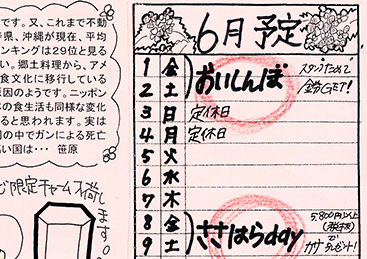 です。又、これまで不動
県、沖縄が現在、平均
ンキングは29位と見る
い。郷土料理から、アメ
食文化に移行している
原因のようです。ニッポン
の食生活も同様な変化
ると思われます。実は
の中でガンによる死亡
い国は… 笹原
限定チャームス術し
ます。
6月予定
1 金 おいしんぼ スタンプためて
2 土 金券GET!
3 日 定休日
4 月 定休日
5 火
6 水
7 木
8 金 ささはらday 5,800円以上
9 土 カサプレゼント!